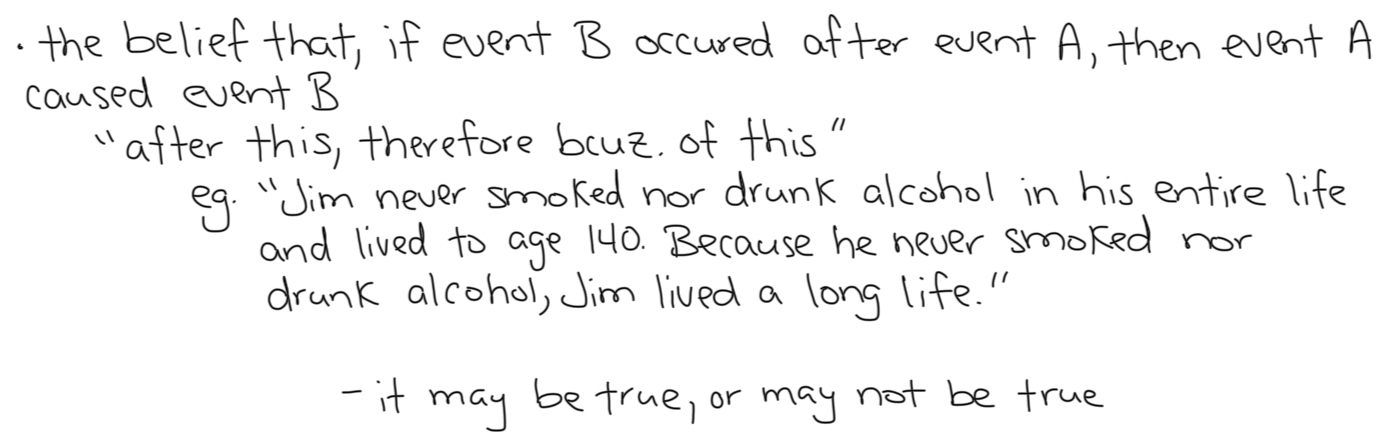 · the belief that, if event B occured after event A, then event A
caused event B
"after this, therefore bcuz. of this"
eg. "Jim never smoked nor drunk alcohol in his entire life
and lived to age 140. Because he never smoked nor
drunk alcohol, Jim lived a long life."
- it may be true, or may not be true